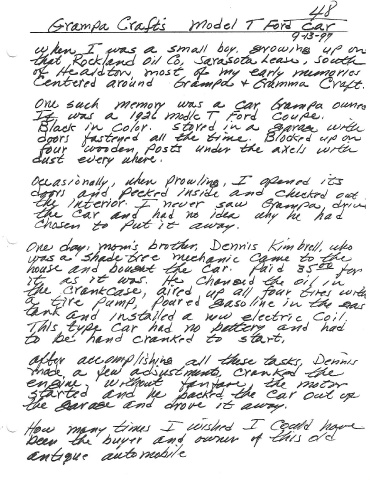 48
Grampa Crafts Model T Ford Car
9-13-97
When I was a small boy, growing up on
that Rockland Oil Co, Sarasota Lease, south
of Healdton, most of my early memories
centered around Grampa & Gramma Craft.
One such memory was a car Grampa owned
It was a 1926 Modle T Ford Coupe.
Black in Color. stored in a garage with
doors fastened all the time. Blocked up on
four wooden, posts under the axels with
dust every where.
Occasionally, when prowling, I opened its
doors and peeked inside and checked out
the interior. I never saw Grampa, drive
the car and had no idea why he had
chosen to put it away.
One day, mom's brother, Dennis Kimbrell, who
was a shade tree mechanic came to the
house and bought the car. paid 35.00 for
it as it was. He changed the oil in
the crankcase, aired up all four tires with
a tire pump, poured gasoline in the gas
tank and installed a new electric Coil.
This type car had no battery and had
to be hand cranked to start.
after accomplishing all these tasks, Dennis
made a few adjustments, cranked the
engine, without fanfare, the motor
started and he backed the car out of
the garage and drove it away.
How many times I wished I could have
been the buyer and owner of this old
antique automobile